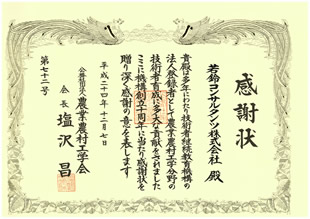 感謝状
若鈴コンサルタンツ株式会社 殿
貴殿は多年にわたり技術者継続教育機構の
法人登録者として農業農村工学分野の
技術者育成に多大な貢献をされました
ここに機構創立十周年に当たり感謝状を
贈り深く感謝の意を表します
平成二十四年十二月七日
公益社団法人 農業農村工学会
会長 塩沢 昌
第七十二号